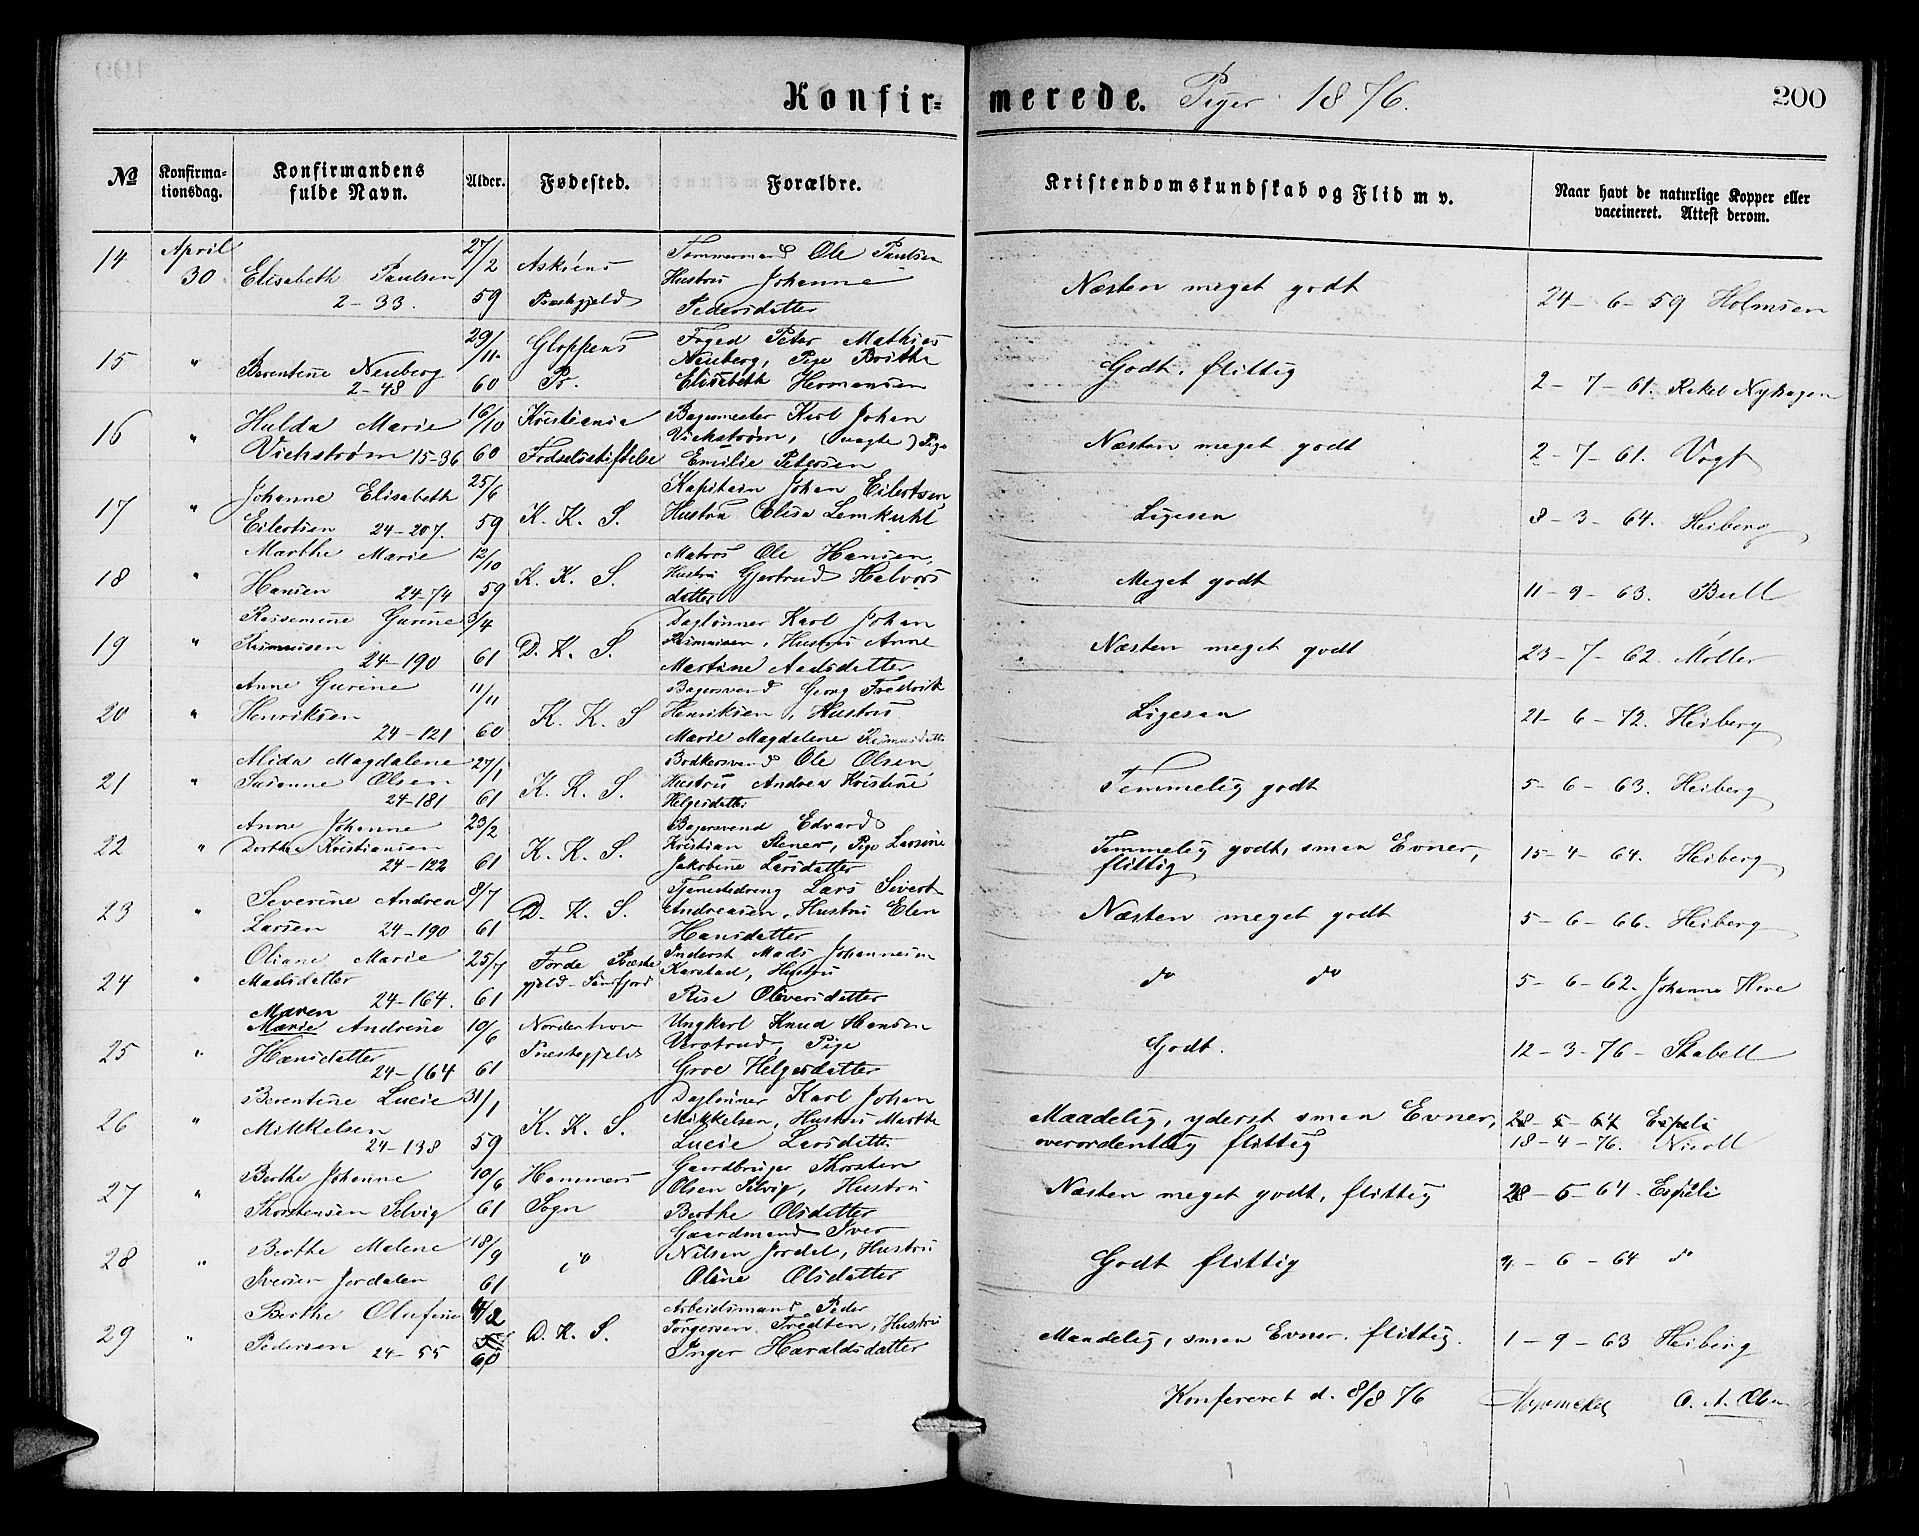 Konfir-merede. Piger 1876.
200
No
Konfirma-
tionsdag.
Konfirmandens
fulde Navn.
Alder.
Fødested.
Forældre.
Kristendomskundskab og Flid m v.
Naar havt de naturlige Kopper eller
vaccineret. Attest derom.
14 April 27/2 Tømmermand Ole Paulsen
30 Elisabeth Paulsen Askøens Hustru Johanne Næsten meget godt
2-33. 59 Præstegjeld Pedersdatter 24-6-59 Holmsen
29/11 Gloppens Foged Peter Mathias
15 " Berentine Neuberg Neuberg, Pige Brithe Godt, flittig
2-48 60 Pr. Elisabeth Hermansen 2-7-61. Rakel Nyhagen
Hulda Marie 16/10 Kristiania Bagermester Karl Johan
16 " Vichstrøm, (uægte) Pige Næsten meget godt
Vichstrøm 15-36 60 Fødselsstiftelse Emilie Petersen 2-7-61. Vogt
Johanne Elisabeth 25/6 Kaptein Johan Eilertsen
17 " K. K. S. Hustru Elisa Lemkuhl Ligesaa
Eilertsen 24-207. 59 8-3-64. Heiberg
Marthe Marie 12/10 Matros Ole Hansen,
18 " K. K. S. Hustru Gjertrud Halvors Meget godt
Hansen 24-74 59 datter 11-9-63. Bull
Rasmine Gurine 3/4 Daglønner Karl Johan
19 " Rasmussen D. K. S. Rasmussen, Hustru Anne Næsten meget godt
24-190 61 Martine Aadsdatter 23-7-62. Møller
Anne Gurine 11/11 Bagersvend Georg Fredrik
20 " Henriksen K. K. S Henriksen, Hustru Ligesaa
24-121 60 Marie Magdalene Rasmusdatte 21-6-72. Heiberg
Alida Magdalene 27/1 Bødkersvend Ole Olsen
21 " Susanne Olsen K. K. S. Hustru Andrea Kristine Temmelig godt
24-181 61 Helgesdatter 5-6-63. Heiberg
Anne Johanne 23/2 Bagersvend Edvard
22 " Dorthe Kristiansen K. K. S. Kristian Stener, Pige Larsine Temmelig godt, smaa Evner,
24-122 61 Jakobine Larsdatter flittig 15-4-64. Heiberg
Severine Andrea 8/7 Tjenestedreng Lars Sivert
23 " D. K. S. Andreasen, Hustru Elen Næsten meget godt
Larsen 24-190 61 Hansdatter 5-6-66. Heiberg
Oliane Marie 25/7 Førde Præste Inderst Mads Johannesen
24 " Madsdatter gjeld - Søndfjord Karstad, Hustru do do
24-164. 61 Rise Oliversdatter 5-6-62. Johanna Hove
Maren
Marie Andrine 10/6 Norderhov Ungkarl Knud Hansen
25 " Hansdatter Præstegjeld Verstrud, Pige Godt.
24-164 61 Groe Helgesdatter 12-3-76- Stabell
Berentine Lucie 31/1 Daglønner Karl Johan
26 " Mikkelsen K. K. S. Mikkelsen, Hustru Marthe Maadelig, yderst smaa Evner, 28-5-64 Espeli
24-138 59 Lucie Larsdatter overordentlig flittig 18-4-76. Nicoll
Berthe Johanne 10/6 Hammers Gaardbruger Thorsten
27 " Olsen Selvig, Hustru Næsten meget godt, flittig 28-5-64. Espeli
Thorstensen Selvig 61 Sogn Berthe Olsdatter
Berthe Malene 18/9 Gaardmand Iver
28 " do Nilsen Jordal, Hustru Godt flittig 9-6-64 do
Iversen Jordalen 61 Oline Olsdatter
Berthe Olufine 4/2 Arbeidsmand Peder
29 " D. K. S. Torgersen Tredten, Hustru Maadelig, smaa Evner. flittig. 1-9-63 Heiberg
Pedersen 24-55 60 Inger Haraldsdatter
Konfereret d. 8/8 76 O. A. Olsen